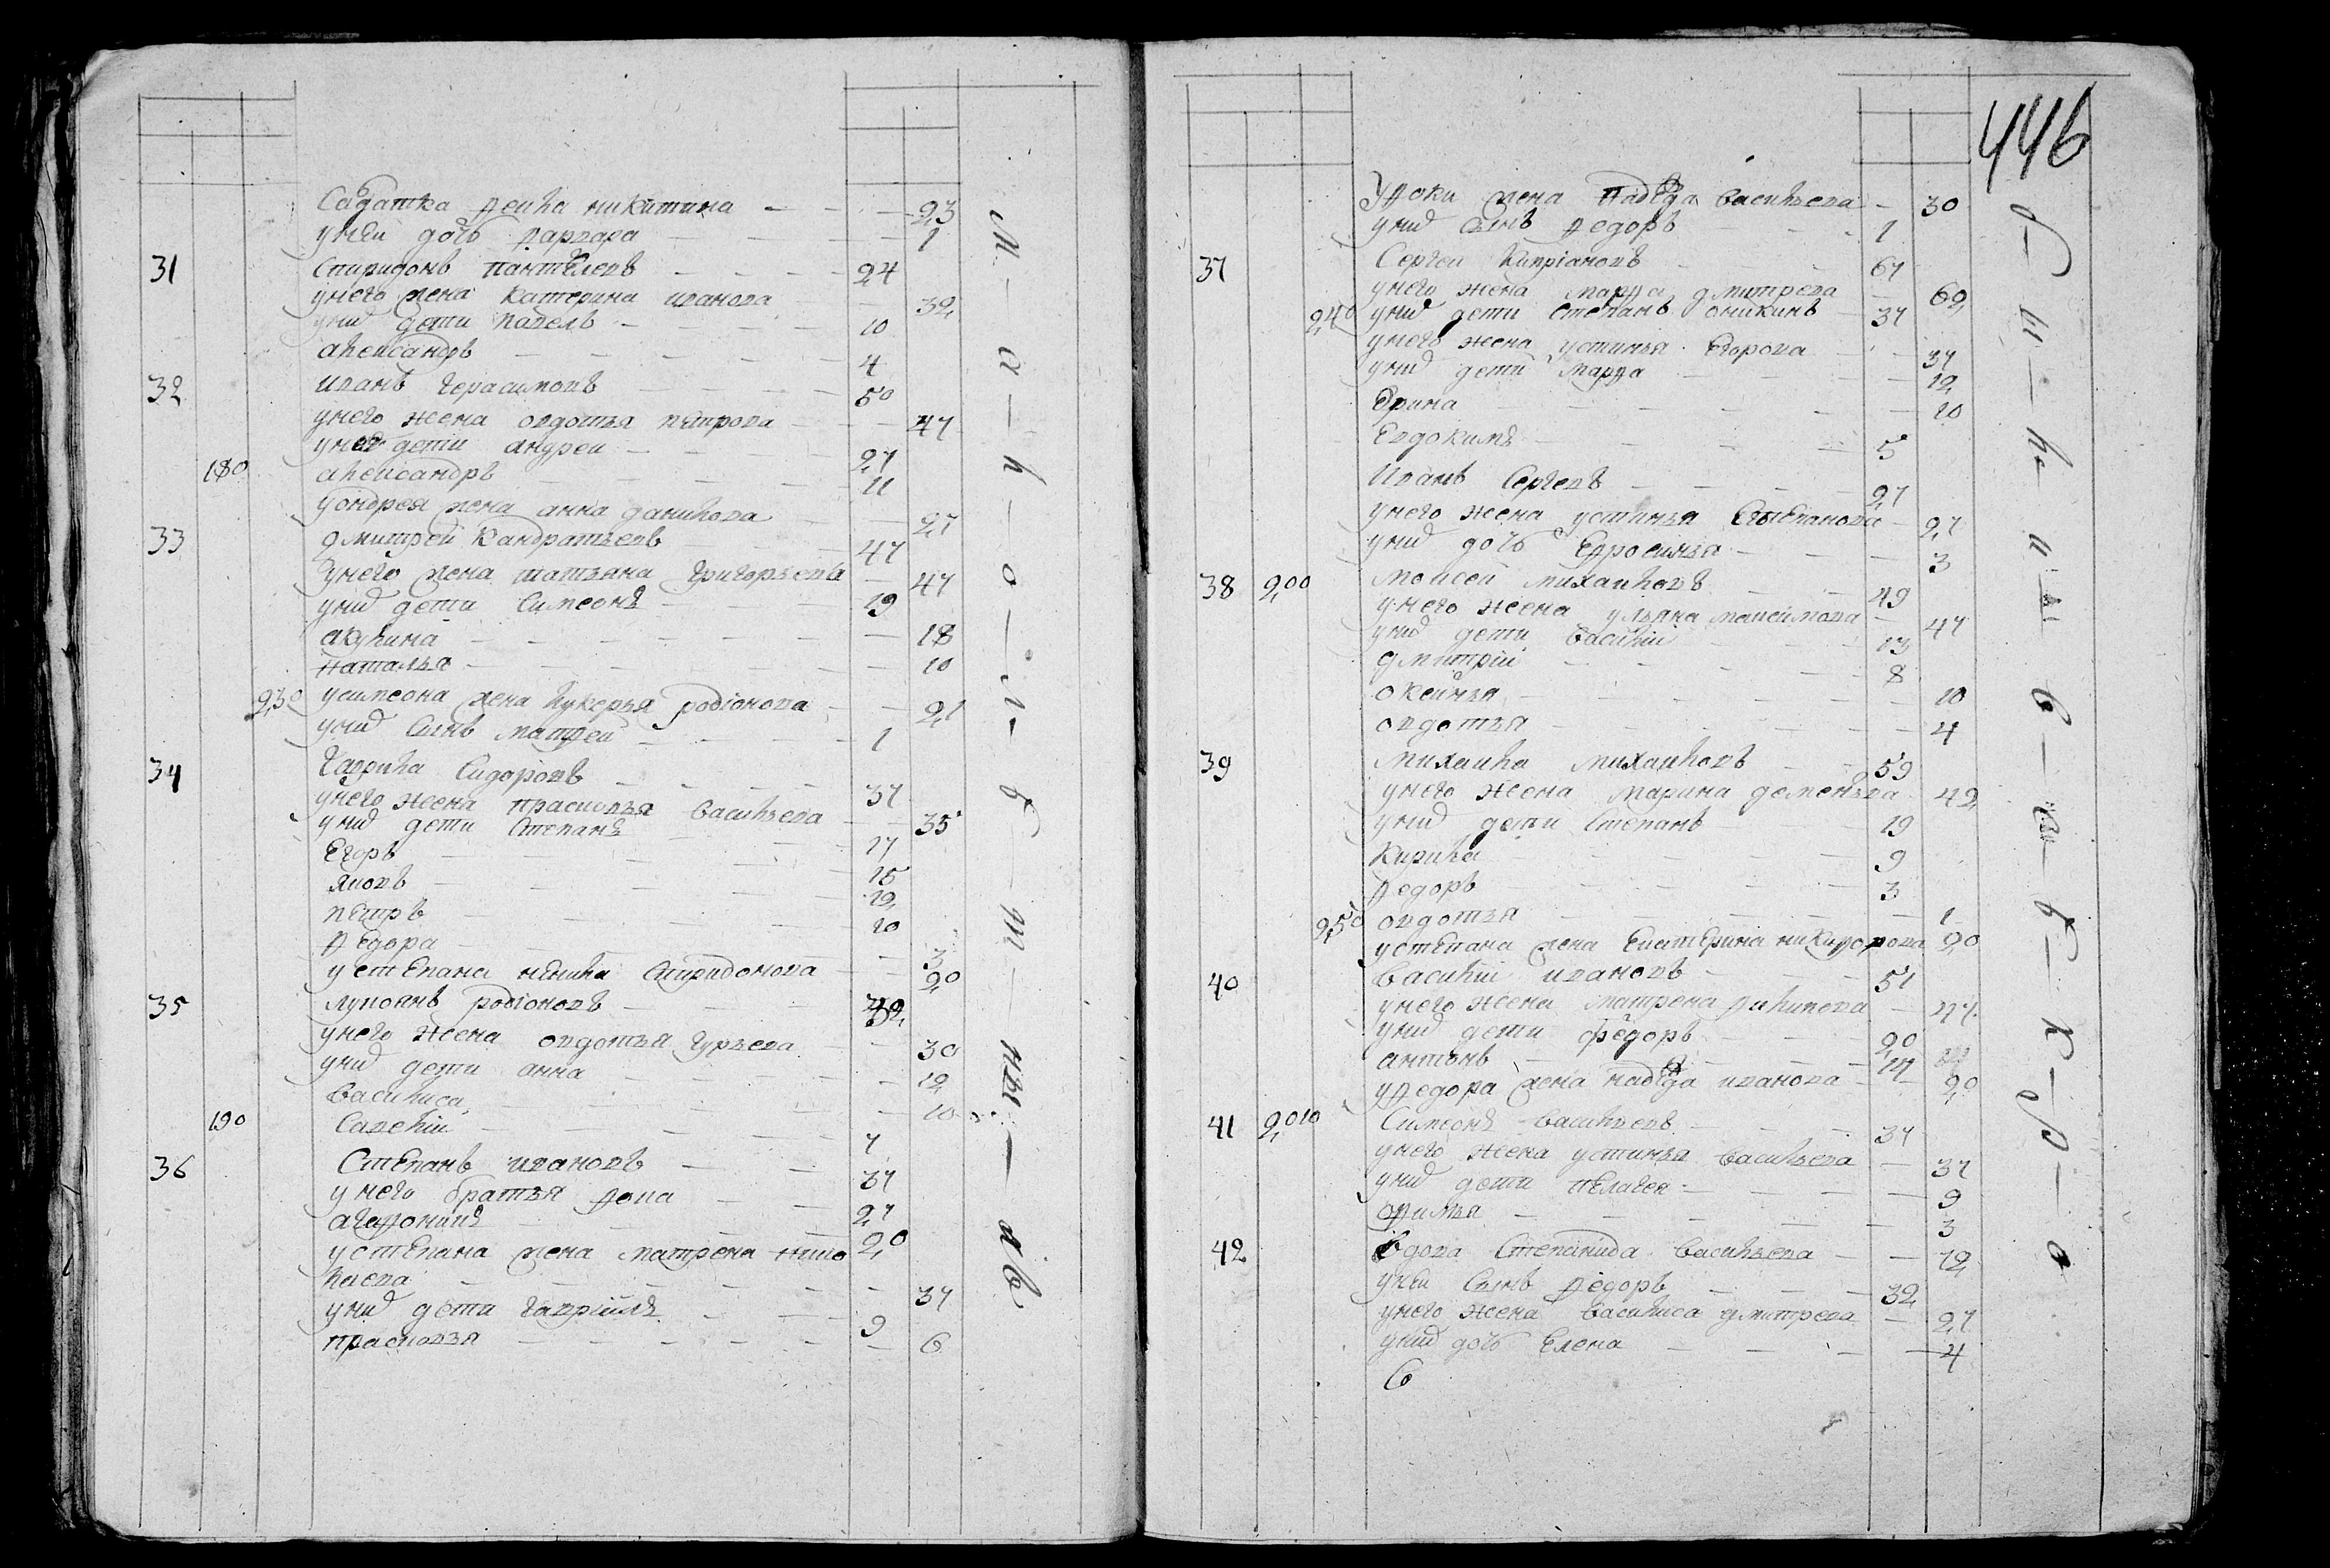 Салдатка Фекла Никитина — 23
у ней дочь Варвара — 1
31 Спиридонъ Пантелеевъ — 24
у него жена Катерина Иванова — 32
у них дети Павелъ — 10
Александръ — 4
32 Иванъ Герасимовъ — 50
у него жена Овдотья Петрова — 47
у них дети Андреи — 27
180 Александръ — 11
у Ондрея жена Анна Данилова — 27
33 Дмитреи Кандратьевъ — 47
у него жена Татьяна Григорьева — 47
у них дети Симеонъ — 19
Акулина — 18
Наталья — 10
230 у Симеона жена Лукерья Родіонова — 21
у них сынъ Матфеи — 1
34 Гаврила Сидоровъ — 37
у него жена Прасковья Васильева — 35
у них дети Степанъ — 17
Егоръ — 15
Яковъ — 12
Петръ — 10
Федора — 3
у Степана Ненила Спиридонова — 20
35 Лукоянъ Родіоновъ
у него жена Овдотья Гурьева — 30
у них дети Анна — 12
Василиса — 10
190 Савелій — 7
36 Степанъ Ивановъ — 37
у него братья Фока — 27
Агафоникъ — 20
у Степана жена Матрена Нико
лаева — 37
у них дети Гавріилъ — 9
Прасковья — 6
446
у Фоки жена Надежда Васильева — 30
у них сынъ Федоръ — 1
37 Сергеи Кипріановъ — 67
у него жена Марфа Дмитрева — 62
240 у них дети Степанъ Оникинъ — 37
у него жена Устинья Егорова — 37
у них дети Марфа — 12
Ѳрина — 10
Евдокимъ — 5
Иванъ Сергеевъ — 27
у него жена Устинья Степанова — 27
у них дочь Ефросинья — 3
38 200 Моисеи Михаиловъ — 49
у него жена Ульяна Максимова — 47
у них дети Василіи — 13
Дмитріи — 8
Оксинья — 10
Овдотья — 4
39 Михаила Михаиловъ — 59
у него жена Марина Дементьева — 42
у них дети Степанъ — 19
Кирила — 9
Федоръ — 3
250 Овдотья — 1
у Степана жена Екатерина Никифорова 20
40 Василіи Ивановъ — 51
у него жена Матрена Филипова — 47
у них дети Федоръ — 20
Антонъ — 14
у Федора жена Надежда Иванова — 20
41 2010 Симеонъ Васильевъ — 37
у него жена Устинья Васильева — 37
у них дети Пелагея — 9
Офимья — 3
42 Вдова Степанида Васильева — 72
у ней сынъ Федоръ — 32
у него жена Василиса Дмитрева — 27
у них дочь Елена — 4